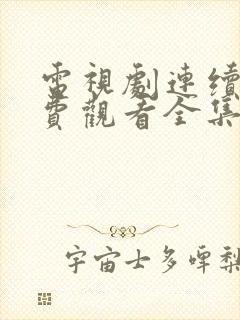 電視劇連續
費觀看全集
宇宙士多啤梨